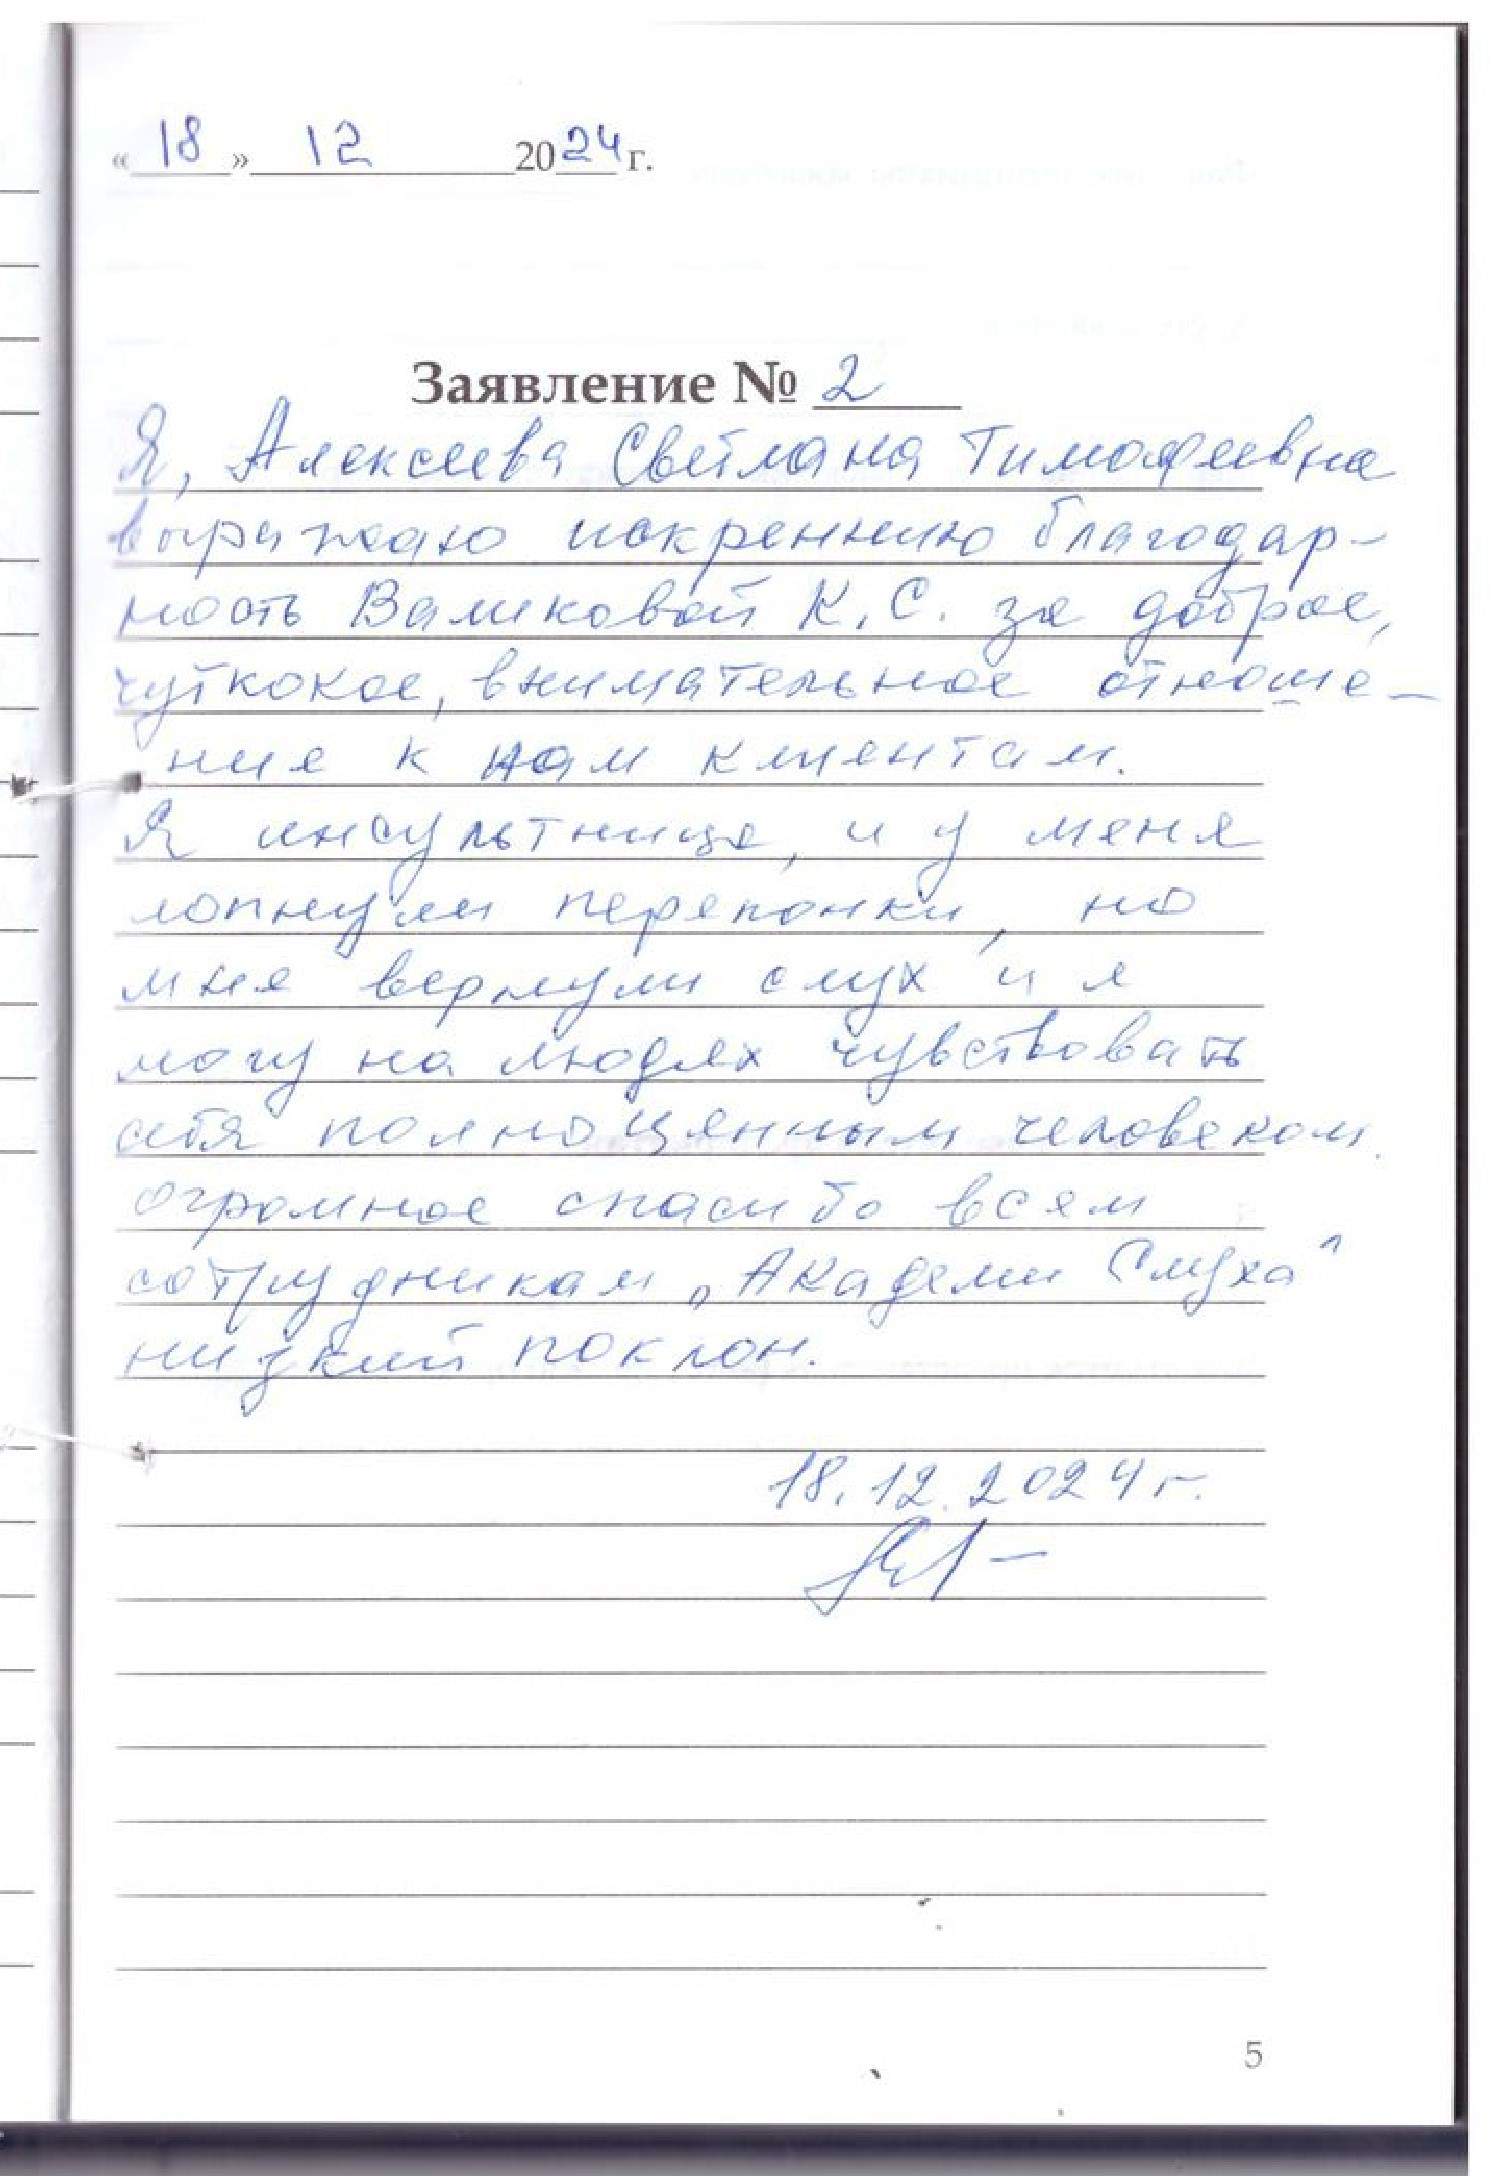 « 18 » 12 2024 г.
Заявление № 2
Я, Алексеева Светлана Тимофеевна
выражаю искреннюю благодар-
ность Валиковой К.С. за доброе,
чуткокое, внимательное отноше-
ние к нам клиентам.
Я инсультница, и у меня
лопнули перепонки, но
мне вернули слух и я
могу на людях чувствовать
себя полноценным человеком.
огромное спасибо всем
сотрудникам „Академи Слуха"
низкий поклон.
18.12.2024 г.
5